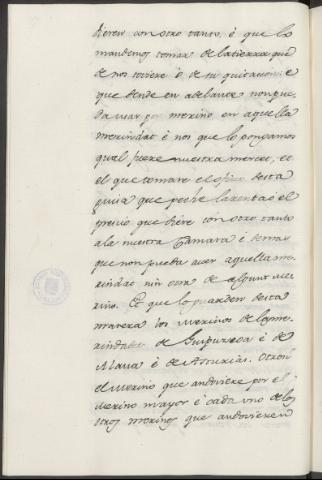 dieren con otro tanto, é que lo
mandemos tomar de la tierra que
de nos toviere ó de su quitacion: é
que dende en adelante non pue
da usar por merino en aquella
merindat é nos que lo pongamos
qual fuere nuestra merced, et
el que tomare el oficio desta
guisa que peche la renta ó el
precio que diere con otro tanto
a la nuestra Camara é demas
que non pueda aver aquella me
rindat nin otra de algunt me
rino. Et que lo guarden desta
manera los Merinos de las me
rindades de Guipuzcoa é de
Alava é de Asturias. Otrosi
el Merino que andoviere por el
Merino mayor é cada uno de los
otros merinos que andovieren